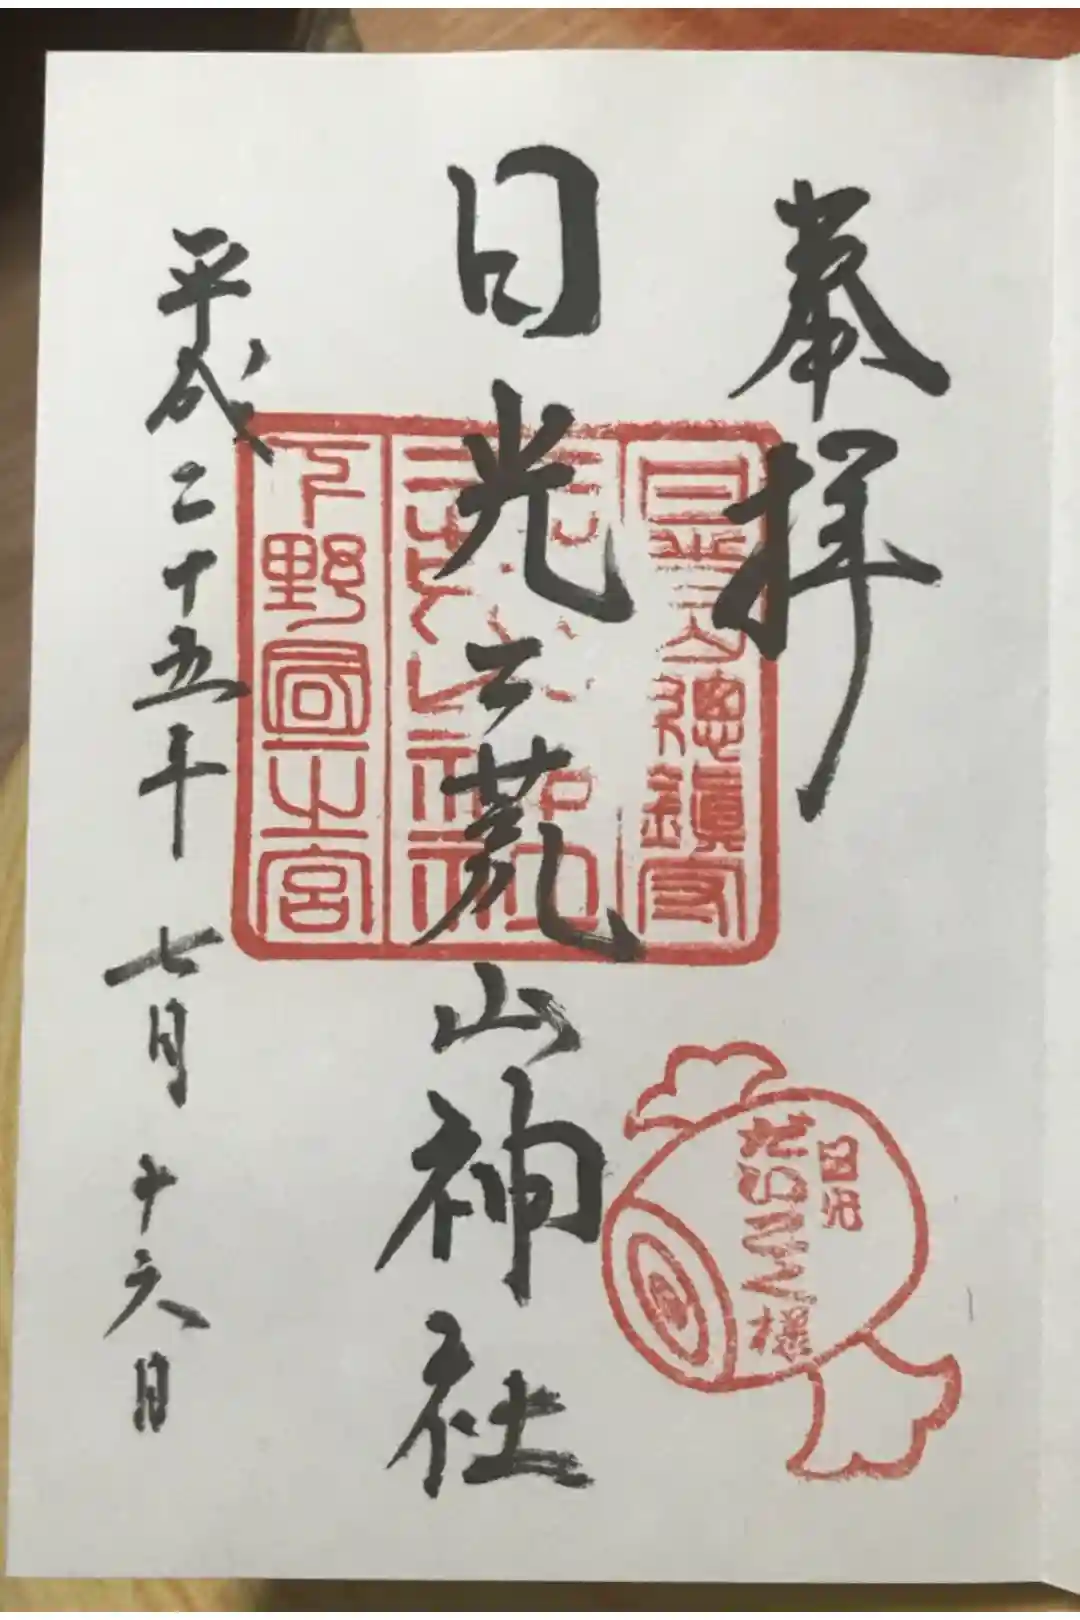 奉拝
日光二荒山神社
平成二十五年 七月十六日
日光山總鎭守
下野國一之宮
日光
だいこく様